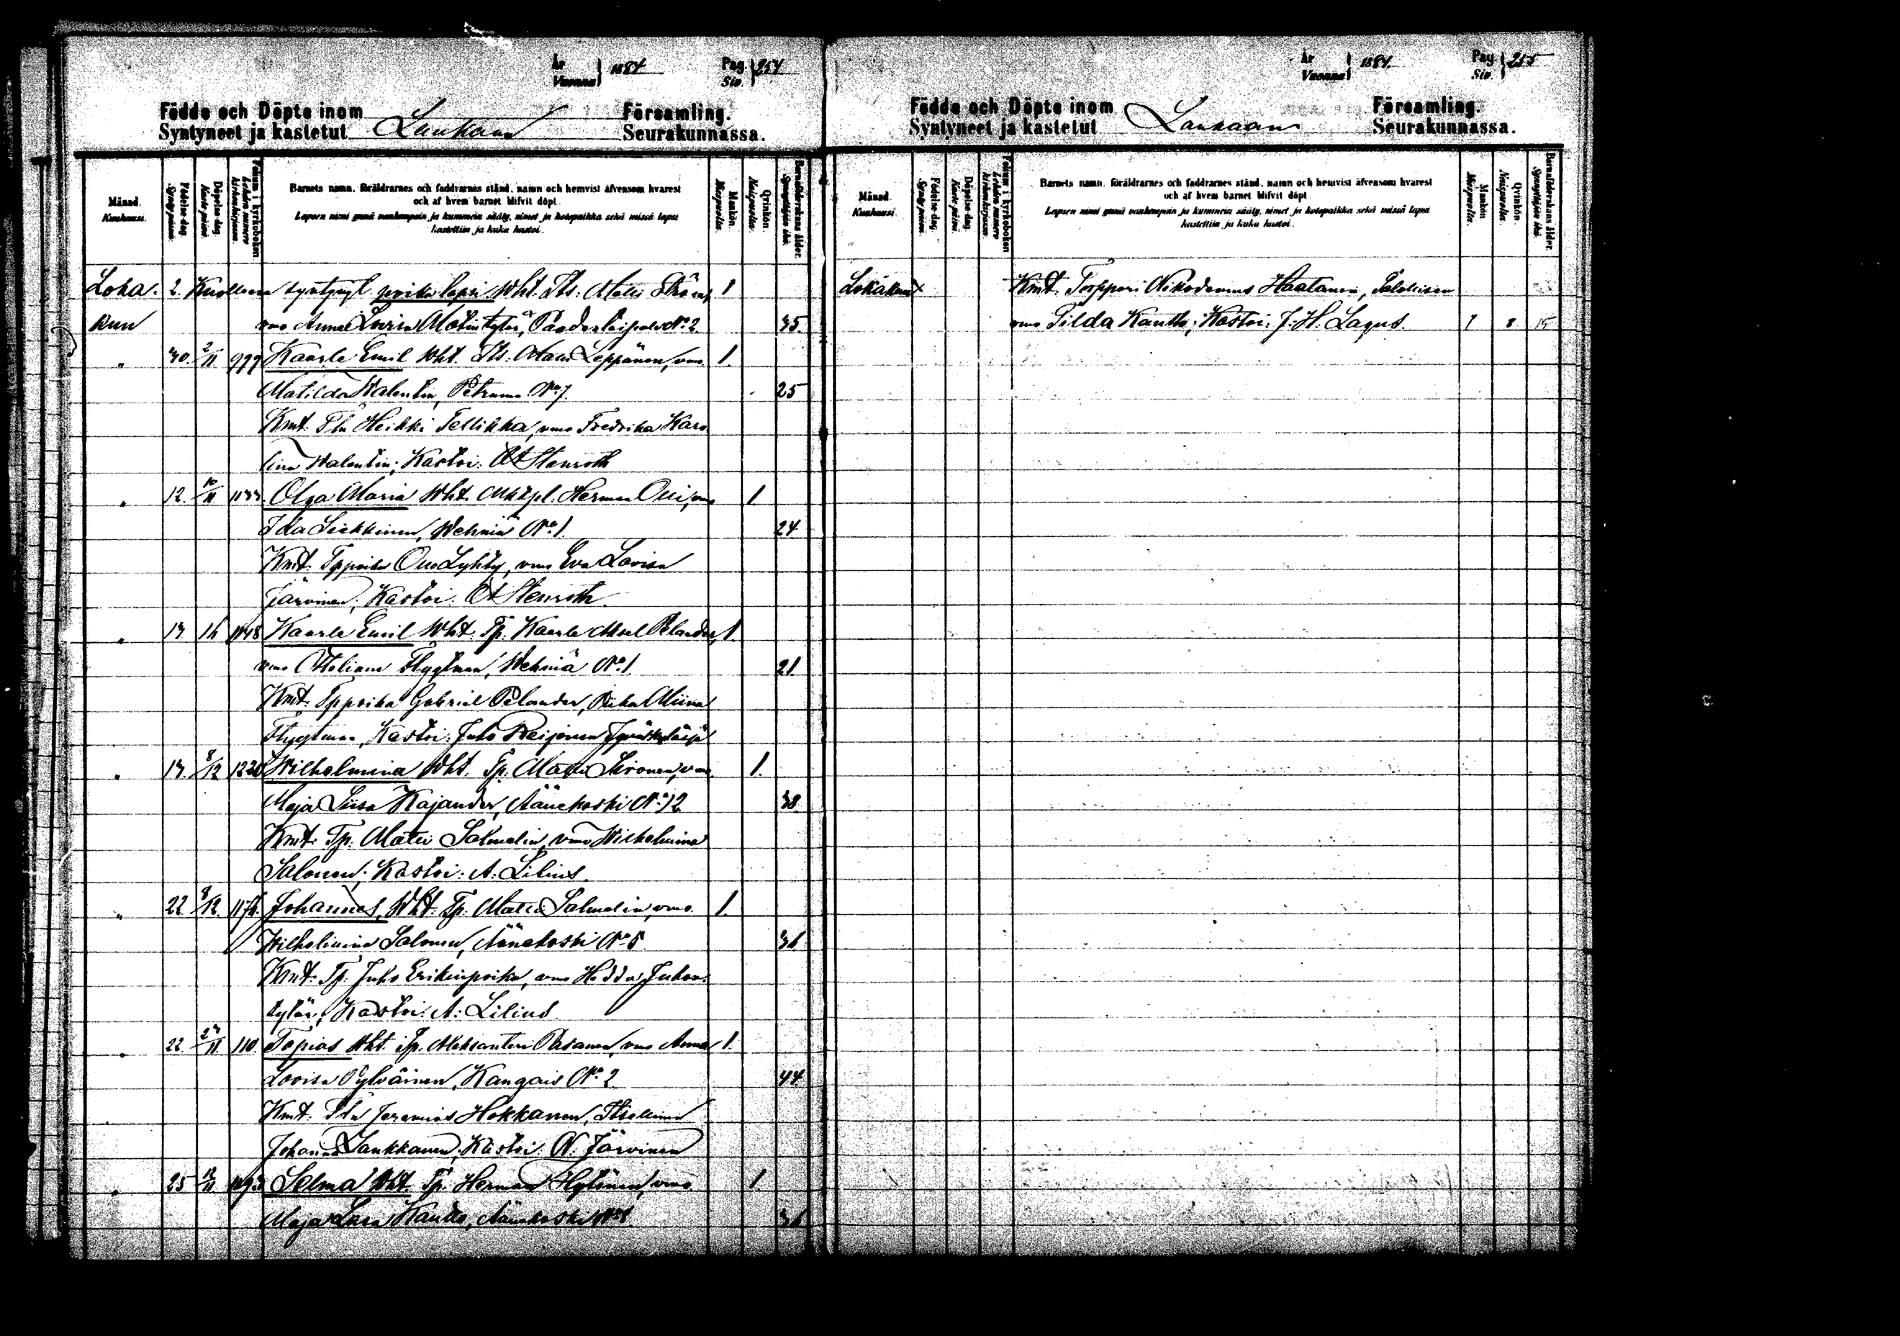 År
Vuonna } 1884
Pag.
Siv. } 254
Födde och Döpte inom
Syntyneet ja kastetut Laukaan
Församling.
Seurakunnassa.
Månad.
Kuukausi.
Födelse-dag.
Synty-päivä.
Döpelse-dag.
Kaste-päivä.
Folium i kyrkoboken
Lehden numero kirkonkirjassa.
Barnets namn, föräldrarnes och faddrarnes stånd, namn och hemvist äfvensom hvarest
och af hvem barnet blifvit döpt.
Lapsen nimi ynnä vanhempain ja kummein sääty, nimet ja kotopaikka sekä missä lapsi
kastettiin ja kuka kastoi.
Mankön.
Miespuolia.
Qvinkön.
Naispuolia.
Barnaföderskans ålder.
Synnyttäjän ikä.
Loka- 2. Kuollona syntynyt poika lapsi Wht. Its. Matti 1
kuu vmo Anna Lovisa Matintytär, No 2 35
" 30. 2/11 999 Kaarle Emil Wht. Its. Matti Leppänen, vmo 1.
Matilda Walentin, Petruma No 7. 25
Kmt. Heikki Tellikka, vmo Fredrika Karo
lina Walentin; Kastoi: Stenroth
" 12. 10/11 1133 Olga Maria Wht. Mktpl. Herman Olli, vmo 1
Ida Liekkinen, Wehniä No 1. 24
Kmt. Tppoika Otto Lyhty, vmo Eva Lovisa
Järvinen; Kastoi: Stenroth.
" 13 16 1148 Kaarle Emil Wht. Tp. Kaarle Pelander, 1.
vmo Flygtman, Wehniä No 1. 21
Kmt. Tppoika Gabriel Pelander, Piika Miina
Flygtman, Kastoi: Juho Reijonen
" 13. 8/12 1220 Wilhelmina Wht. Tp. Matti Sironen, vmo 1.
Maja Liisa Kajander, Äänekoski No 12 38
Kmt. Tp. Matti Salmelin, vmo Wilhelmina
Salonen; Kastoi: A. Lilius.
" 22 8/12 Johannes, Wht. Tp. Matti Salmelin, vmo 1.
Wilhelmina Salonen, Äänekoski No 5 36
Kmt. Tp. Juho Erikinpoika, vmo Hedda Juhon-
tytär, Kastoi: A. Lilius
" 22. 23/11 110 Topias Wht. Tp. Aleksanteri Pasanen, vmo Anna 1.
Lovisa Pylväinen, Kangais No 2 44
Kmt. Jeremias Hokkanen, Itsellinen
Johanna Laukkanen, Kastoi: N. Järvinen
" 25 12/11 Selma Wht. Tp. Herman Hytönen, vmo 1.
Maja Lisa Kautto, Äänekoski No 1 36
År
Vuonna } 1884.
Pag
Siv. } 255
Födde och Döpte inom
Syntyneet ja kastetut Laukaan
Församling.
Seurakunnassa.
Månad.
Kuukausi.
Födelse-dag.
Synty-päivä.
Döpelse-dag.
Kaste-päivä.
Folium i kyrkoboken
Lehden numero kirkonkirjassa
Barnets namn, föräldrarnes och faddrarnes stånd, namn och hemvist äfvensom hvarest
och af hvem barnet blifvit döpt
Lapsen nimi ynnä vanhempain ja kummein sääty, nimet ja kotopaikka sekä missä lapsi
kastettiin ja kuka kastoi.
Mankön
Miespuolia.
Qvinkön.
Naispuolia.
Barnaföderskans ålder.
Synnyttäjän ikä.
Lokakuu Kmt. Torppari Nikodemus Haatanen, Itsellisen
vmo Tilda Kautto; Kastoi: J. H. Lagus. 7 8 15